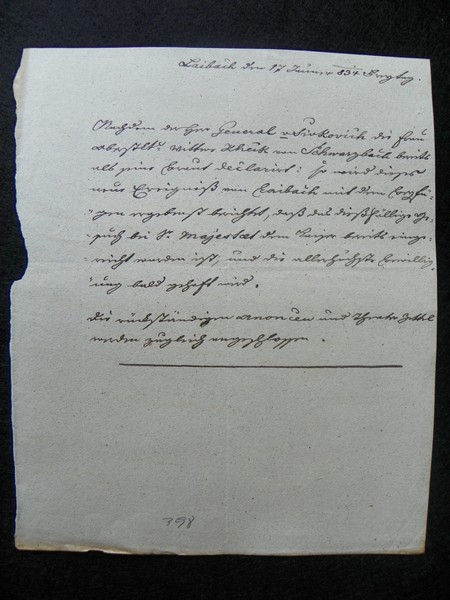 Laibach den 27 Jänner 834
Nachdem der Herr General v Sivkovich die Frau
Witwe von Schwarzbach bereits
als seine Braut declarirt: so wird dieses
neue Ereigniß von Laibach mit dem
gen ergebenst berichtet, daß das dießfällige Ge-
such bei Sr. Majestaet dem Kaiser bereits einge-
reicht worden ist, und die allerhöchste Bewillig-
ung bald gehofft wird.
Die rückständigen Anoncen und Theater Zettel
werden zugleich angeschlossen.
798